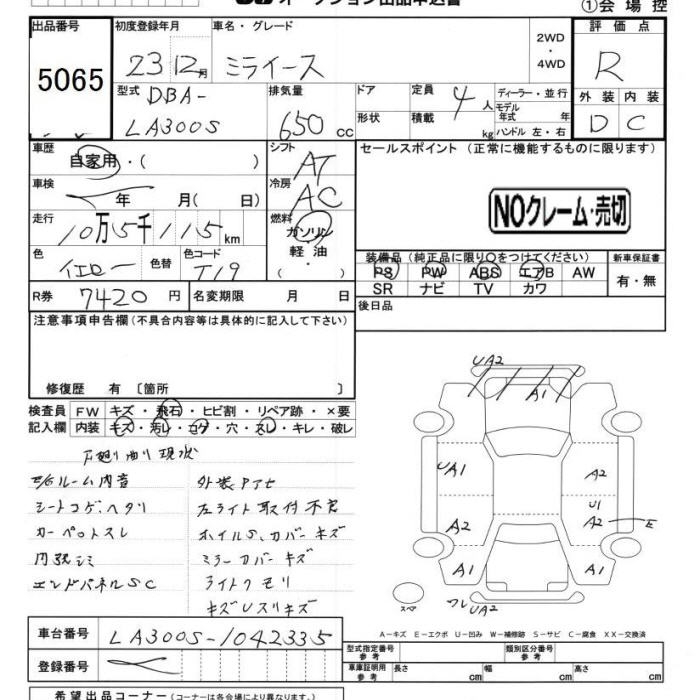 オークション出品申込書
①会場控
出品番号
5065
初度登録年月
23 12月
車名・グレード
ミライース
2WD
・
4WD
評価点
R
外装 内装
D C
型式
DBA-
LA300S
排気量
650 cc
ドア
形状
定員
4人
積載
kg
ディーラー・並行
モデル
年式 年
ハンドル 左・右
車歴
自家用・( )
シフト
AT
車検
年 月( 日)
冷房
AC
走行
10万5千115km
燃料
ガソリン
軽油
・
色
イエロー
色替
色コード
T19
R券
7420円
名変期限 月 日
セールスポイント (正常に機能するものに限ります)
NOクレーム・売切
装備品 (純正品に限り○をつけてください)
PS PW ABS エアB AW
SR ナビ TV カワ
新車保証書
有・無
後日品
注意事項申告欄(不具合内容等は具体的に記入して下さい)
修復歴 有 〔箇所 〕
検査員
記入欄
FW キズ・飛石・ヒビ割・リペア跡・×要
内装 キズ・汚レ・コゲ・穴・スレ・キレ・破レ
現状
E/Gルーム内音
シートコゲ、ヘタリ
カーペットスレ
内張シミ
エンドパネルSC
外装
左ライト取付不良
ホイルS、カバーキズ
ミラーカバーキズ
ライトクモリ
キズUスリキズ
UA2
A1
UA1
A2
U1
A2
A2 E
A1
A1
スペア
フレ UA2
A-キズ E-エクボ U-凹み W-補修跡 S-サビ C-腐食 XX-交換済
車台番号
LA300S-1042335
登録番号
型式指定番号
参考
類別区分番号
参考
車庫証明用
参考
長さ cm
幅 cm
高さ cm
希望出品コーナー(コーナーは各会場により異なります)